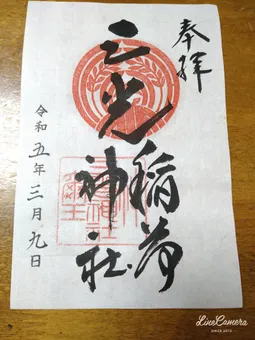 奉拝
三光稲荷
神社
令和五年三月九日
LineCamera